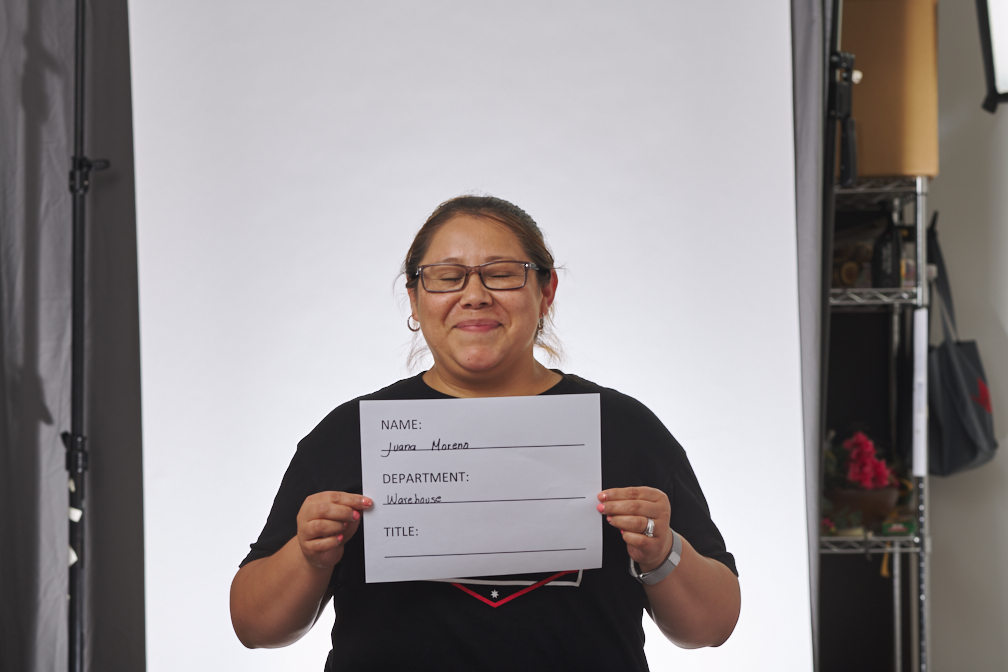 NAME:
Juana Moreno
DEPARTMENT:
Warehouse
TITLE: